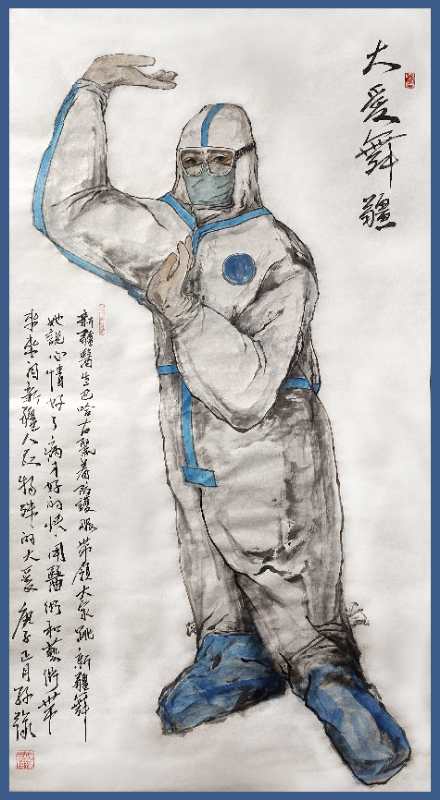 大爱舞疆
新疆醫生巴哈古麗着防護服带领大家跳新疆舞
她說心情好了病才好的快用醫術和藝術带
来来自新疆人民特殊的大爱 庚子正月